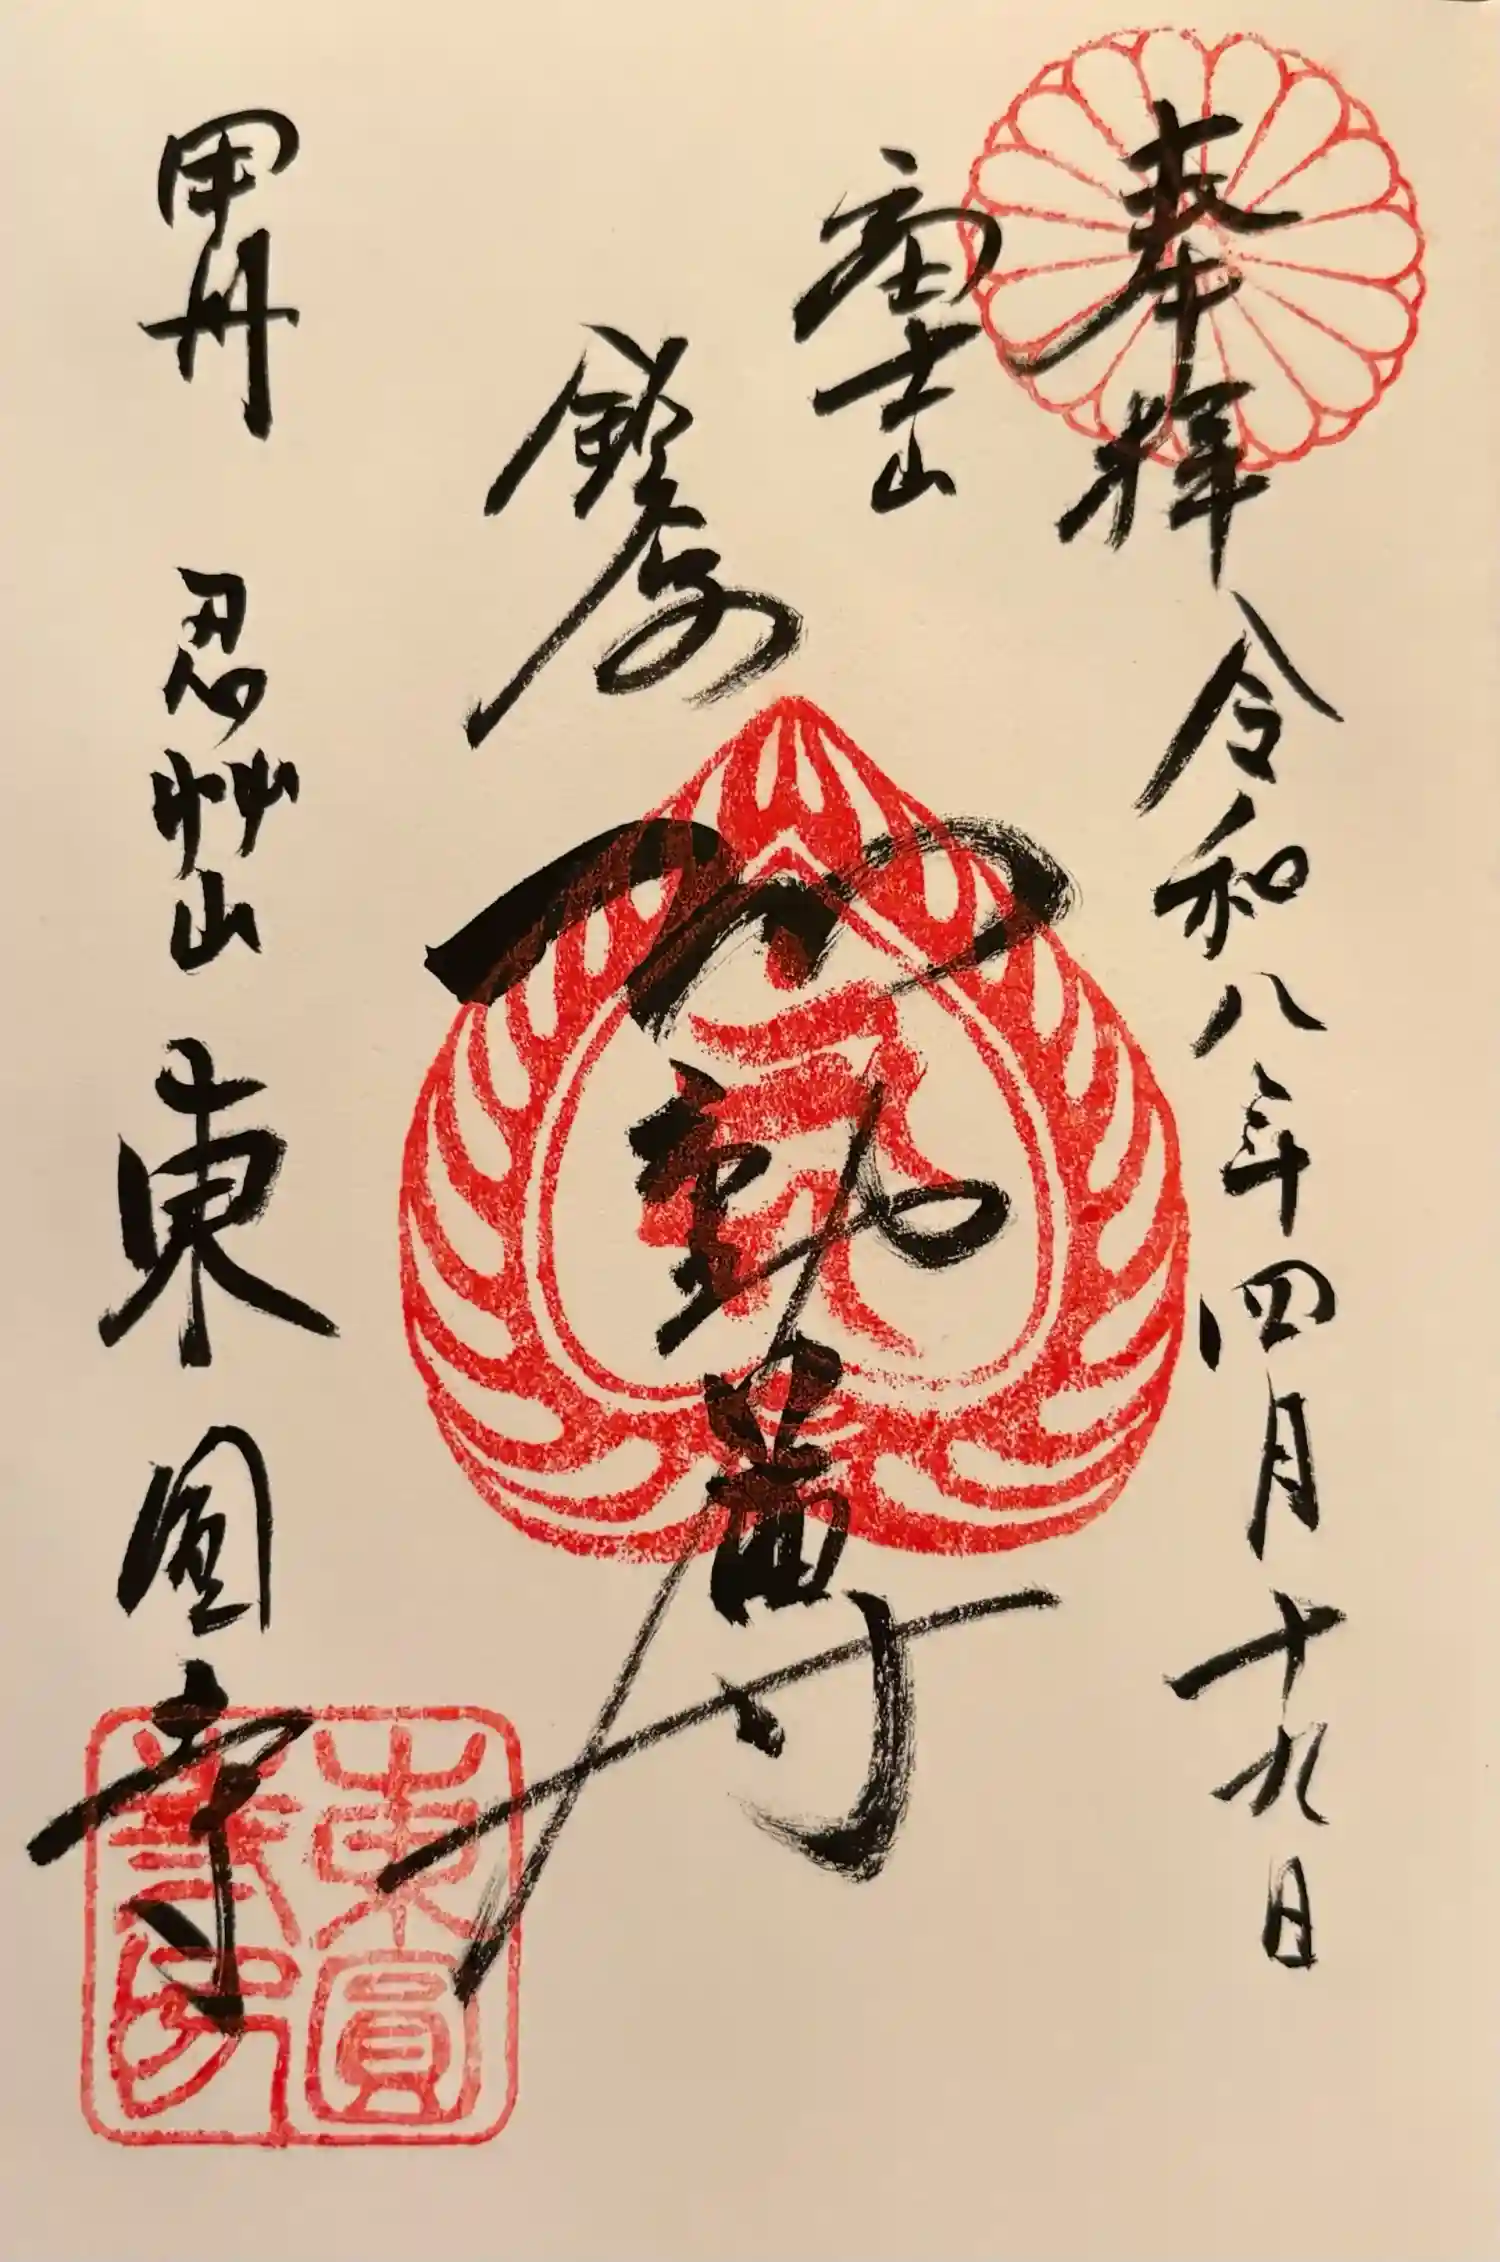 奉拝 令和八年四月十九日
富士山
鈴原
不動尊
甲州 忍艸山 東圓寺
東圓寺印